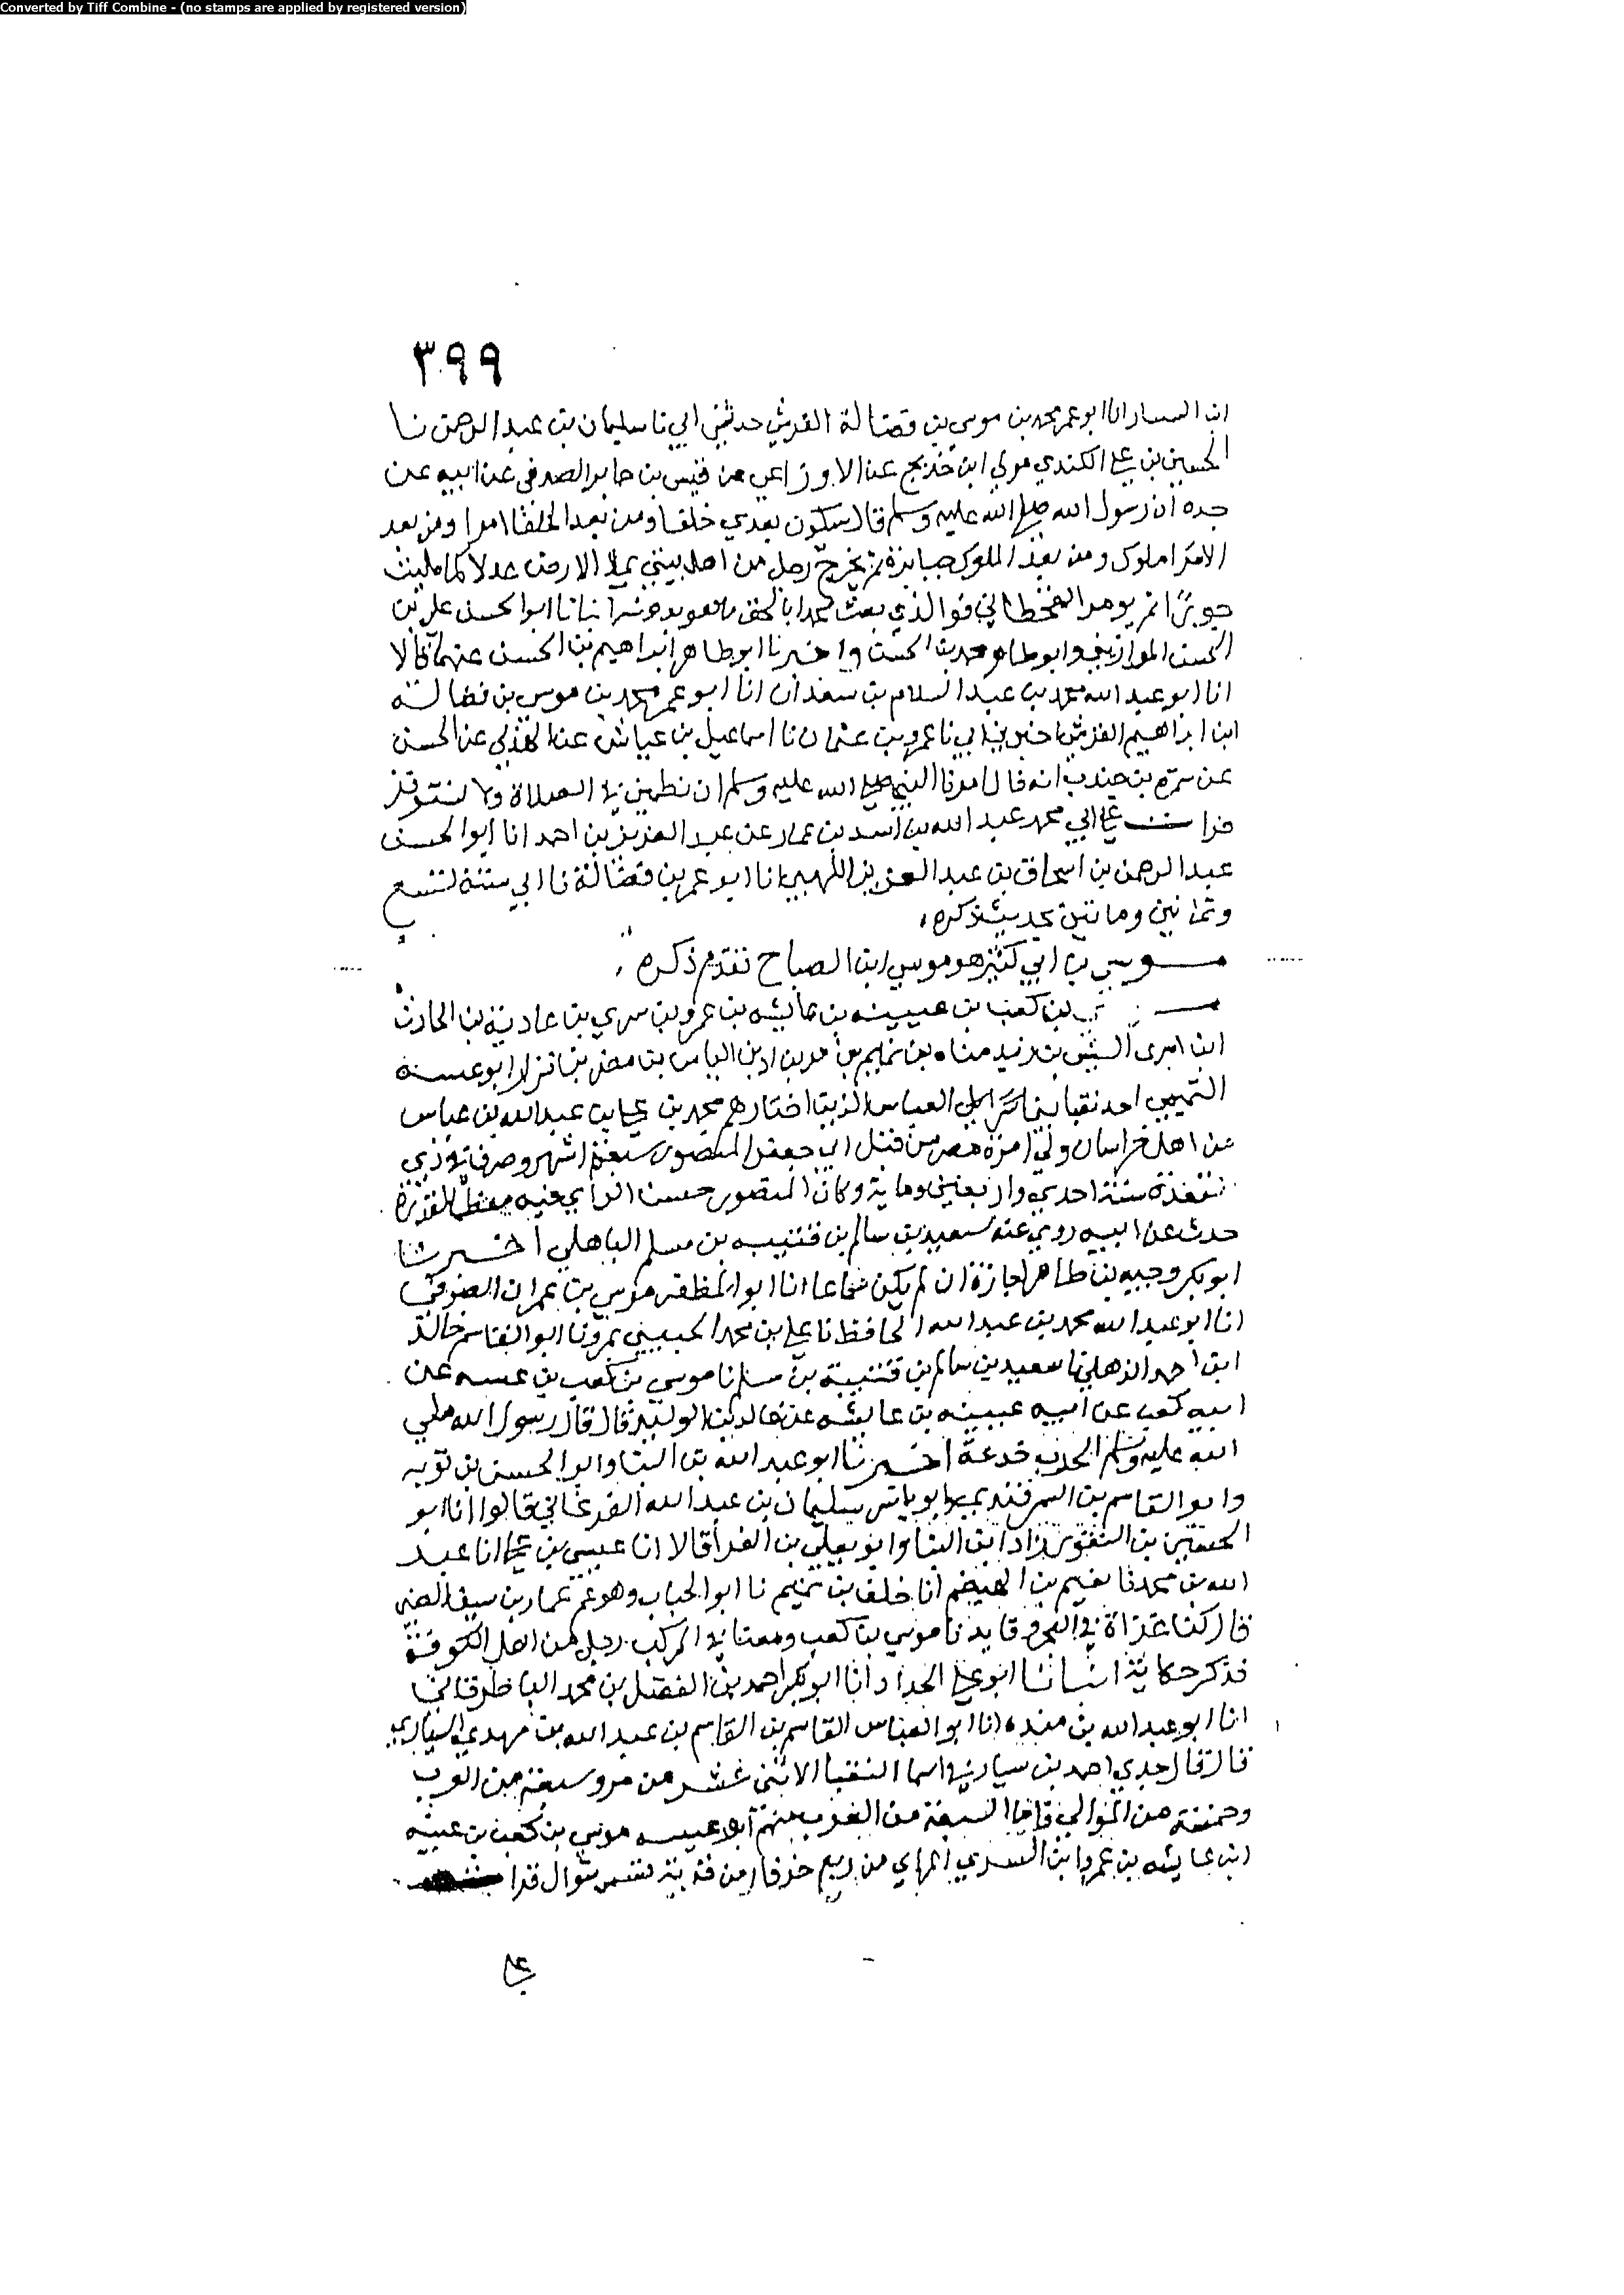 Converted by Tiff Combine - (no stamps are applied by registered version)
٣٩٩
ابن السمسار انا ابو عمر محمد بن موسى بن فضالة القرشي حدثني ابي نا سليمان بن عبد الرحمن نا
الحسين بن علي الكندي مولى ابن خديج عن الاوزاعي عن قيس بن جابر الصدفي عن ابيه عن
جده ان رسول الله صلى الله عليه وسلم قال سيكون بعدي خلفا ومن بعد الخلفا امرا ومن بعد
الامرا ملوك ومن بعد الملوك جبابرة ثم يخرج رجل من اهل بيتي يملا الارض عدلا كما ملئت
جورا ثم يومر القحطاني فو الذي بعث محمدا بالحق ما هو بدونه انبانا ابو الحسن علي بن
الحسن الموازيني وابو طاهر محمد بن الحسين واخبرنا ابو طاهر ابراهيم بن الحسن عنهما قالا
انا ابو عبد الله محمد بن عبد السلام بن سعدان انا ابو عمر محمد بن موسى بن فضالة
ابن ابراهيم القرشي اخبرني ابي نا عمرو بن عثمان نا اسماعيل بن عياش عن الهذلي عن الحسن
عن سمرة بن جندب انه قال امرنا النبي صلى الله عليه وسلم ان نطمئن في الصلاة ولا نستوفز
قرات على ابي محمد عبد الله بن اسد بن عمار عن عبد العزيز بن احمد انا ابو الحسن
عبد الرحمن بن اسحاق بن عبد العزيز اللهبي انا ابو عمر بن فضالة نا ابي سنة تسع
وثمانين وماتين بحديث ذكره
موسى بن ابي كثير هو موسى ابن الصباح تقدم ذكره
بن كعب بن عيينه بن عايشه بن عمرو بن سري بن عادية بن الحارث
ابن امرى القيس بن زيد مناه بن تميم بن مر بن اد بن الياس بن مضر بن نزار ابو عيينه
التميمي احد نقبا بني العباس الذين اختارهم محمد بن علي بن عبد الله بن عباس
من اهل خراسان ولي امرة مصر من قبل ابي جعفر المنصور سبعة اشهر وصرف في ذي
القعدة سنة احدى واربعين وماية وكان المنصور حسن الراي فيه معظما لقدره
حدث عن ابيه روى عنه سعيد بن سالم بن قتيبه بن مسلم الباهلي اخبرنا
ابو بكر وجيه بن طاهر اجازة ان لم يكن سماعا انا ابو المظفر موسى بن عمران الصوفي
انا ابو عبد الله محمد بن عبد الله الحافظ نا علي بن محمد الحبيبي بمرو نا ابو القاسم خالد
ابن احمد الذهلي نا سعيد بن سالم بن قتيبة بن مسلم نا موسى بن كعب بن عيينه عن
ابيه كعب عن ابيه عيينه بن عايشه عن خالد بن الوليد قال قال رسول الله صلى
الله عليه وسلم الحرب خدعة اخبرنا ابو عبد الله بن البنا وابو الحسن بن توبه
وابو القاسم بن السمرقندي وابو ياسر سليمان بن عبد الله الفرغاني قالوا انا ابو
الحسين بن النقور زاد ابن البنا وابو يعلى بن الفرا قالا انا عيسى بن علي انا عبد
الله بن محمد نا نعيم بن الهيضم انا خلف بن تميم نا ابو الحباب وهو عم عمار بن سيف الضبي
قال كنا غزاة في البحر وقايدنا موسى بن كعب ومعنا في المركب رجل من اهل الكوفة
فذكر حكاية انبانا ابو علي الحداد وانا ابو بكر احمد بن الفضل بن محمد الباطرقاني
انا ابو عبد الله بن منده انا ابو العباس القاسم بن القاسم بن عبد الله بن مهدي السياري
قال قال جدي احمد بن سيار في اسما النقبا الاثني عشر من مرو سبعة من العرب
وخمسة من الموالي فاما السبعة من العرب منهم ابو عيينه موسى بن كعب بن عيينه
ابن عايشه بن عمرو ابن السري المراي من ربع خرقان من قرية شوال قرا
علي